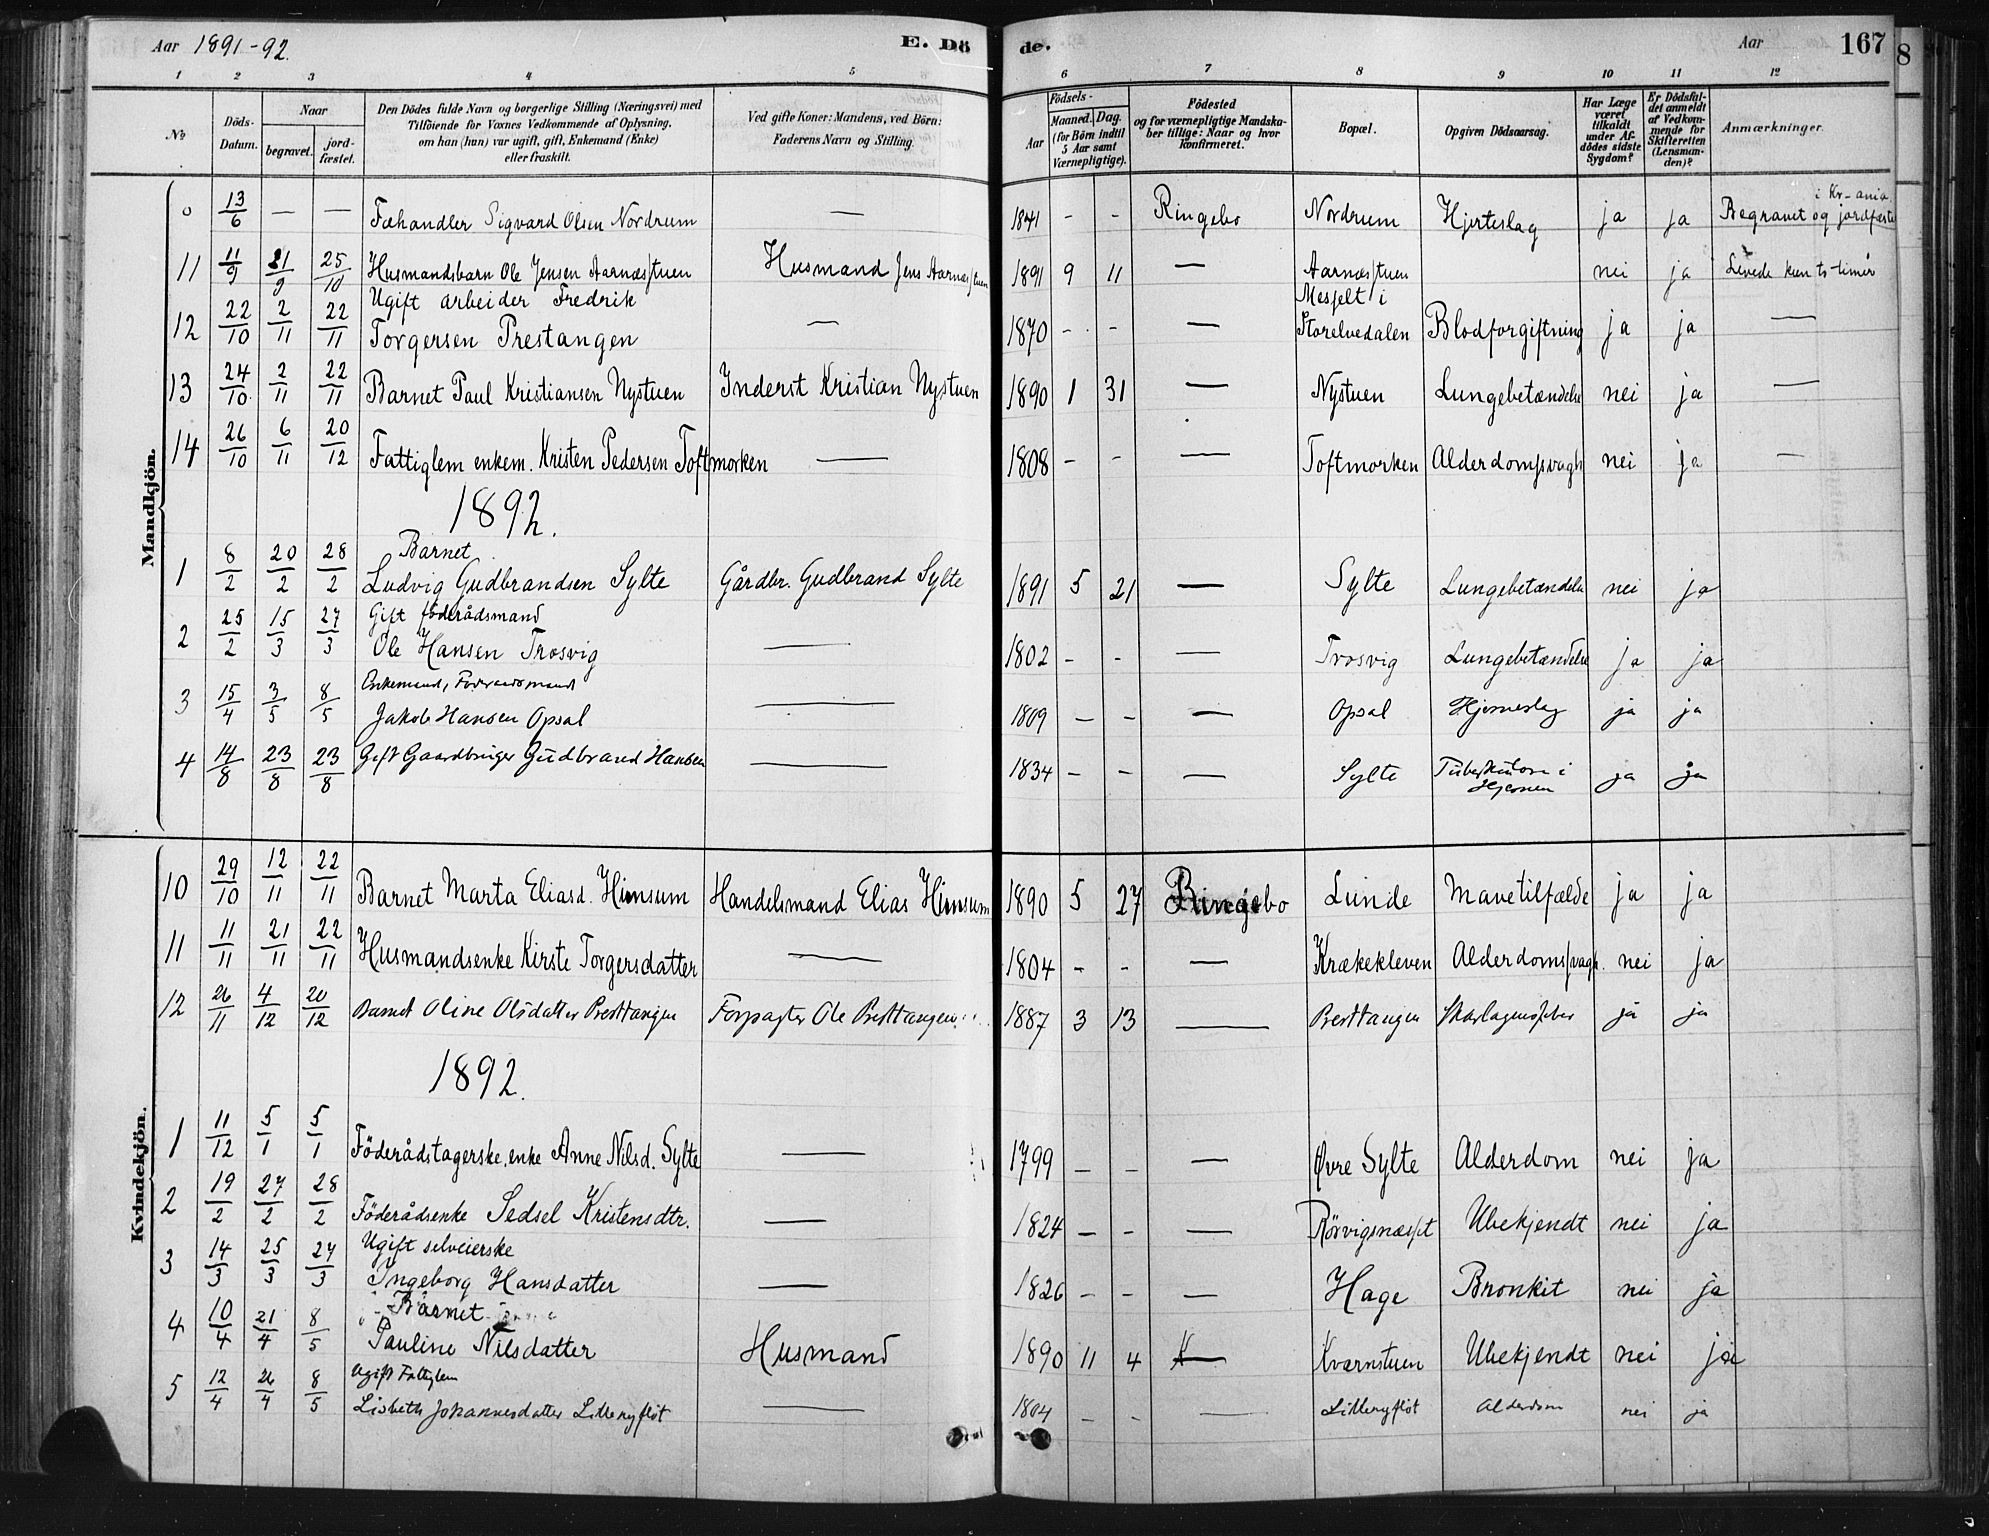 Aar 1891-92.
E. Dö
de.
Aar
167
8
1 2 3 4 5
6 7 8 9 10 11 12
No
Döds-
Datum.
Naar
begravet.
jord-
fæstet.
Den Dödes fulde Navn og borgerlige Stilling (Næringsvei) med
Tilföiende for Voxnes Vedkommende af Oplysning.
om han (hun) var ugift, gift, Enkemand (Enke)
eller fraskilt.
Ved gifte Koner: Mandens, ved Börn:
Faderens Navn og Stilling.
Födsels-
Aar
Maaned. Dag.
(for Börn indtil
5 Aar samt
Værnepligtige).
Födested
og for værnepligtige Mandska-
ber tillige: Naar og hvor
konfirmeret.
Bopæl.
Opgiven Dödsaarsag.
Har Læge
været
tilkaldt
under Af-
dödes sidste
Sygdom?
Er Dödsfal-
det anmeldt
af Vedkom-
mende for
Skifteretten
(Lensman-
den)?
Anmærkninger.
Mandkjön.
i Kr-ania.
0 13/6 — — Fæhandler Sigvard Olsen Nordrum — 1841 - - Ringebo Nordrum Hjerteslag ja ja Begravet og jordfæstet
11 11/9 21/9 25/10 Husmandsbarn Ole Jensen Aarnæsstuen Husmand Jens Aarnæsstuen 1891 9 11 — Aarnæsstuen nei ja Levede kun to timer
Ugift arbeider Fredrik Mesfelt i
12 22/10 2/11 22/11 Torgersen Prestangen — 1870 - - — Storelvedalen Blodforgiftning ja ja —
13 24/10 2/11 22/11 Barnet Paul Kristiansen Nystuen Inderst Kristian Nystuen 1890 1 31 — Nystuen Lungebetændelse nei ja —
14 26/10 6/11 20/12 Fattiglem enkem. Kristen Pedersen Toftmorken — 1808 - - — Toftmorken Alderdomssvagh nei ja —
1892.
Barnet
1 8/2 20/2 28/2 Ludvig Gudbrandsen Sylte Gårdbr. Gudbrand Sylte 1891 5 21 — Sylte Lungebetændelse nei ja
Gift föderådsmand
2 25/2 15/3 27/3 Ole Hansen Trosvig — 1802 - - — Trosvig Lungebetændelse ja ja
Enkemand, Föderaadsmand
3 15/4 3/5 8/5 Jakob Hansen Opsal — 1809 - - — Opsal Hjerneslag ja ja
4 14/8 23/8 23/8 Gift Gaardbruger Gudbrand Hansen — 1834 - - — Sylte Tuberkulose i ja ja
Hjernen
Kvindekjön.
10 29/10 12/11 22/11 Barnet Marta Eliasd. Himsum Handelsmand Elias Himsum 1890 5 27 Ringebo Lunde Mavetilfælde ja ja
11 11/11 21/11 22/11 Husmandsenke Kirste Torgersdatter — 1804 - - — Krækekleven Alderdomssvagh. nei ja
12 26/11 4/12 20/12 Barnet Oline Olsdatter Presttangen Forpagter Ole Presttangen 1887 3 13 — Presttangen Skarlagensfeber ja ja
1892.
1 11/12 5/1 5/1 Föderådstagerske, enke Anne Nilsd. Sylte — 1799 - - — Øvre Sylte Alderdom nei ja
2 19/2 27/2 28/2 Föderådsenke Sedsel Kristensdtr. — 1824 - - — Rörvigsnæsset Ubekjendt nei ja
Ugift selveierske
3 14/3 25/3 27/3 Ingeborg Hansdatter — 1826 - - — Hage Bronkit nei ja
Barnet
4 10/4 21/4 8/5 Pauline Nilsdatter Husmand 1890 11 4 — Kværnstuen Ubekjendt nei ja
Ugift Fattiglem
5 12/4 26/4 8/5 Lisbeth Johannesdatter Lillenyflöt — 1804 - - — Lillenyflöt Alderdom nei ja